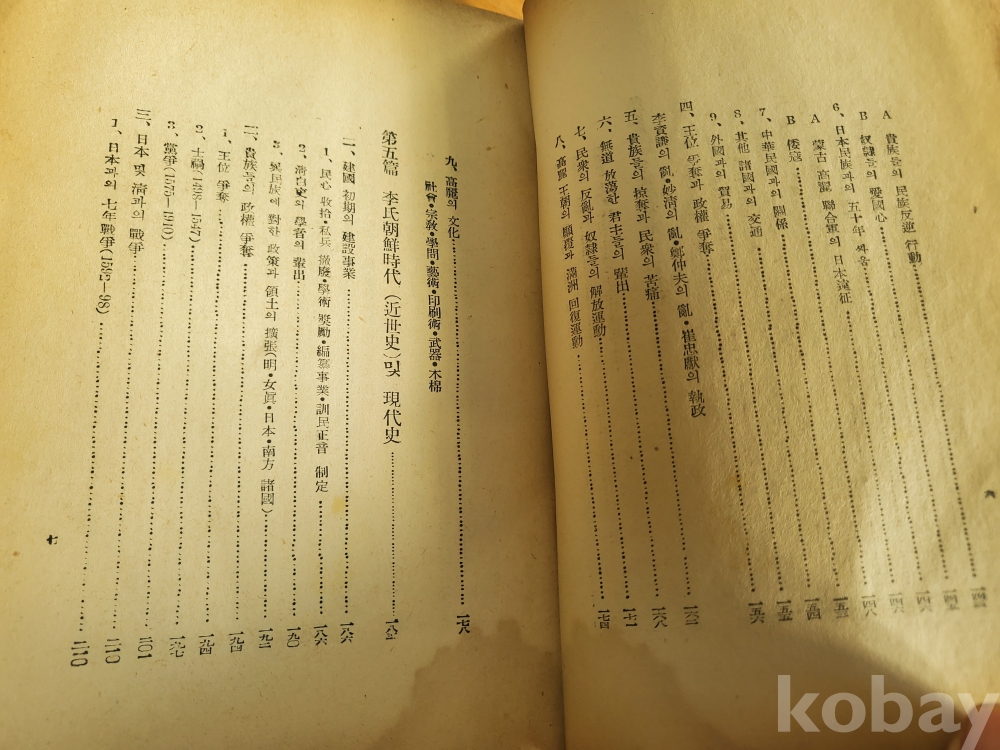 A 貴族들의 民族反逆 行動
B 奴隷들의 愛國心 一四五
6、日本民族과의 五十年 싸움 一四六
A 蒙古 高麗 聯合軍의 日本遠征 一四六
B 倭寇 一四八
7、中華民國과의 關係 一五三
8、其他 諸國과의 交通 一五四
9、外國과의 貿易 一五五
四、王位 爭奪과 政權 爭奪 一五六
李資謙의 亂•妙淸의 亂•鄭仲夫의 亂•崔忠獻의 執政
五、貴族들의 掠奪과 民衆의 苦痛
六、無道 放蕩한 君主들의 輩出 一六八
七、民衆의 反亂과 奴隷들의 解放運動 一七一
八、高麗 王朝의 顚覆과 滿洲 回復運動 一七四
六
九、高麗의 文化 一七八
社會•宗敎•學問•藝術•印刷術•武器•木棉
第五篇 李氏朝鮮時代(近世史)및 現代史
一、建國 初期의 建設事業 一八六
1、民心 收拾•私兵 撤廢•學術 奬勵•編纂事業•訓民正音 制定 一八六
2、淸白吏의 學者의 輩出 一九〇
3、異民族에 對한 政策과 領土의 擴張(明•女眞•日本•南方 諸國) 一九二
二、貴族들의 政權 爭奪 一九四
1、王位 爭奪 一九四
2、士禍(1498—1547) 一九七
3、黨爭(1575—1910) 二〇一
三、日本 및 淸과의 戰爭 二一〇
1、日本과의 七年戰爭(1592—98) 二一〇
七
kobay